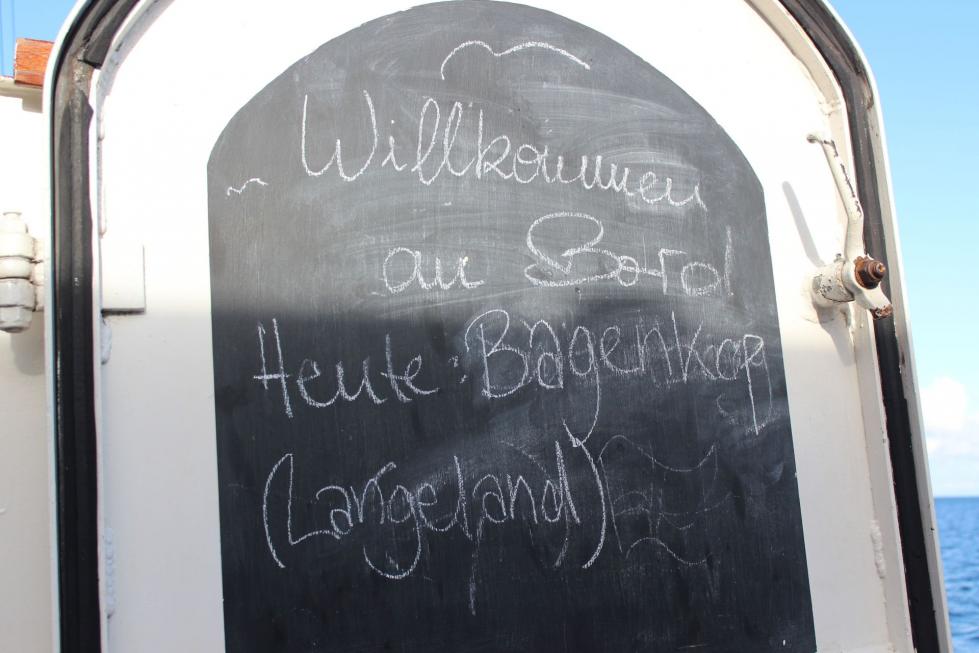 Willkommen
an Bord
Heute: Bagenkop
(Langeland)